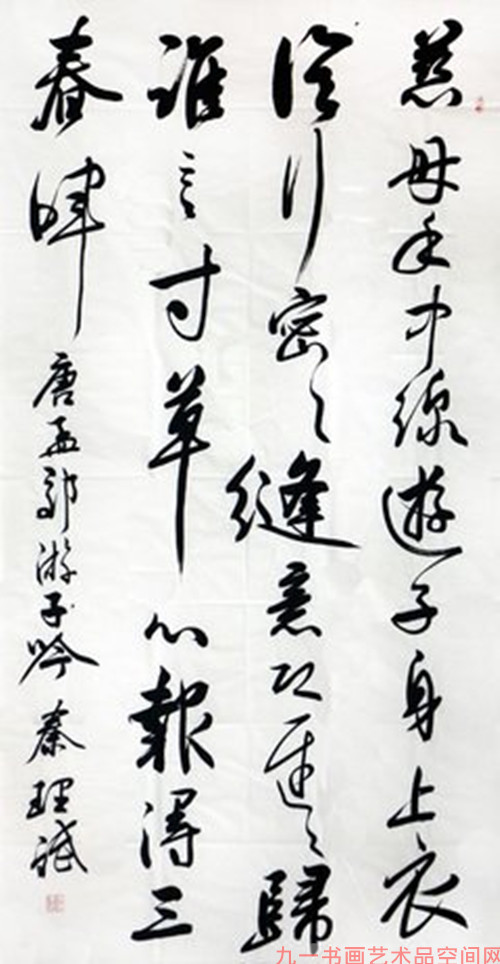 慈母手中線遊子身上衣
臨行密〻縫意恐遲〻歸
誰言寸草心報得三
春暉 唐孟郊游子吟 秦理斌
九一书画艺术品空间网